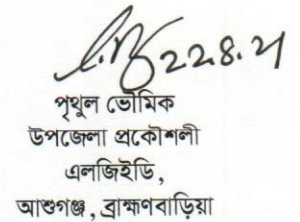 22.8.21
পৃথুল ভৌমিক
উপজেলা প্রকৌশলী
এলজিইডি,
আশুগঞ্জ, ব্রাহ্মণবাড়িয়া